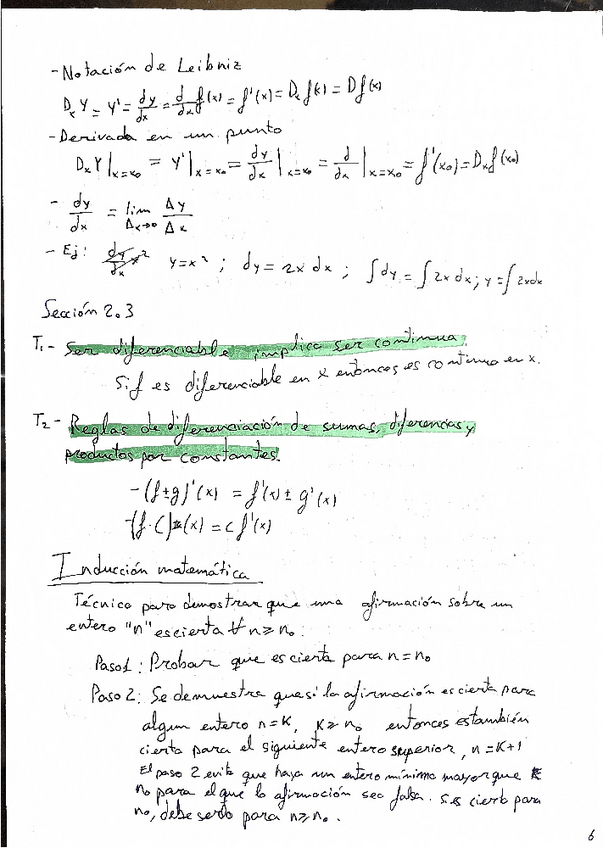 - Notación de Leibniz
DₓY = Y' = dy/dx = d/dx f(x) = f'(x) = Dₓf(x) = Df(x)
- Derivada en un punto
DₓY|ₓ₌ₓ₀ = Y'|ₓ₌ₓ₀ = dy/dx|ₓ₌ₓ₀ = d/dx|ₓ₌ₓ₀ = f'(x₀) = Dₓf(x₀)
- dy/dx = lim Δx→0 Δy/Δx
- Ej: y=x²; dy = 2x dx; ∫dy = ∫2x dx; y = ∫2xdx
Sección 2.3
T₁- Ser diferenciable implica ser continua.
Si f es diferenciable en x entonces es continua en x.
T₂- Reglas de diferenciación de sumas, diferencias, y
productos por constantes.
- (f±g)'(x) = f'(x) ± g'(x)
- (f·C)'(x) = c f'(x)
Inducción matemática
Técnica para demostrar que una afirmación sobre un
entero "n" es cierta ∀ n ≥ n₀.
Paso 1: Probar que es cierta para n = n₀
Paso 2: Se demuestra que si la afirmación es cierta para
algun entero n = K, K ≥ n₀ entonces es también
cierta para el siguiente entero superior, n = K+1
El paso 2 evita que haya un entero mínimo mayor que
n₀ para el que la afirmación sea falsa. Si es cierto para
n₀, debe serlo para n ≥ n₀.
6